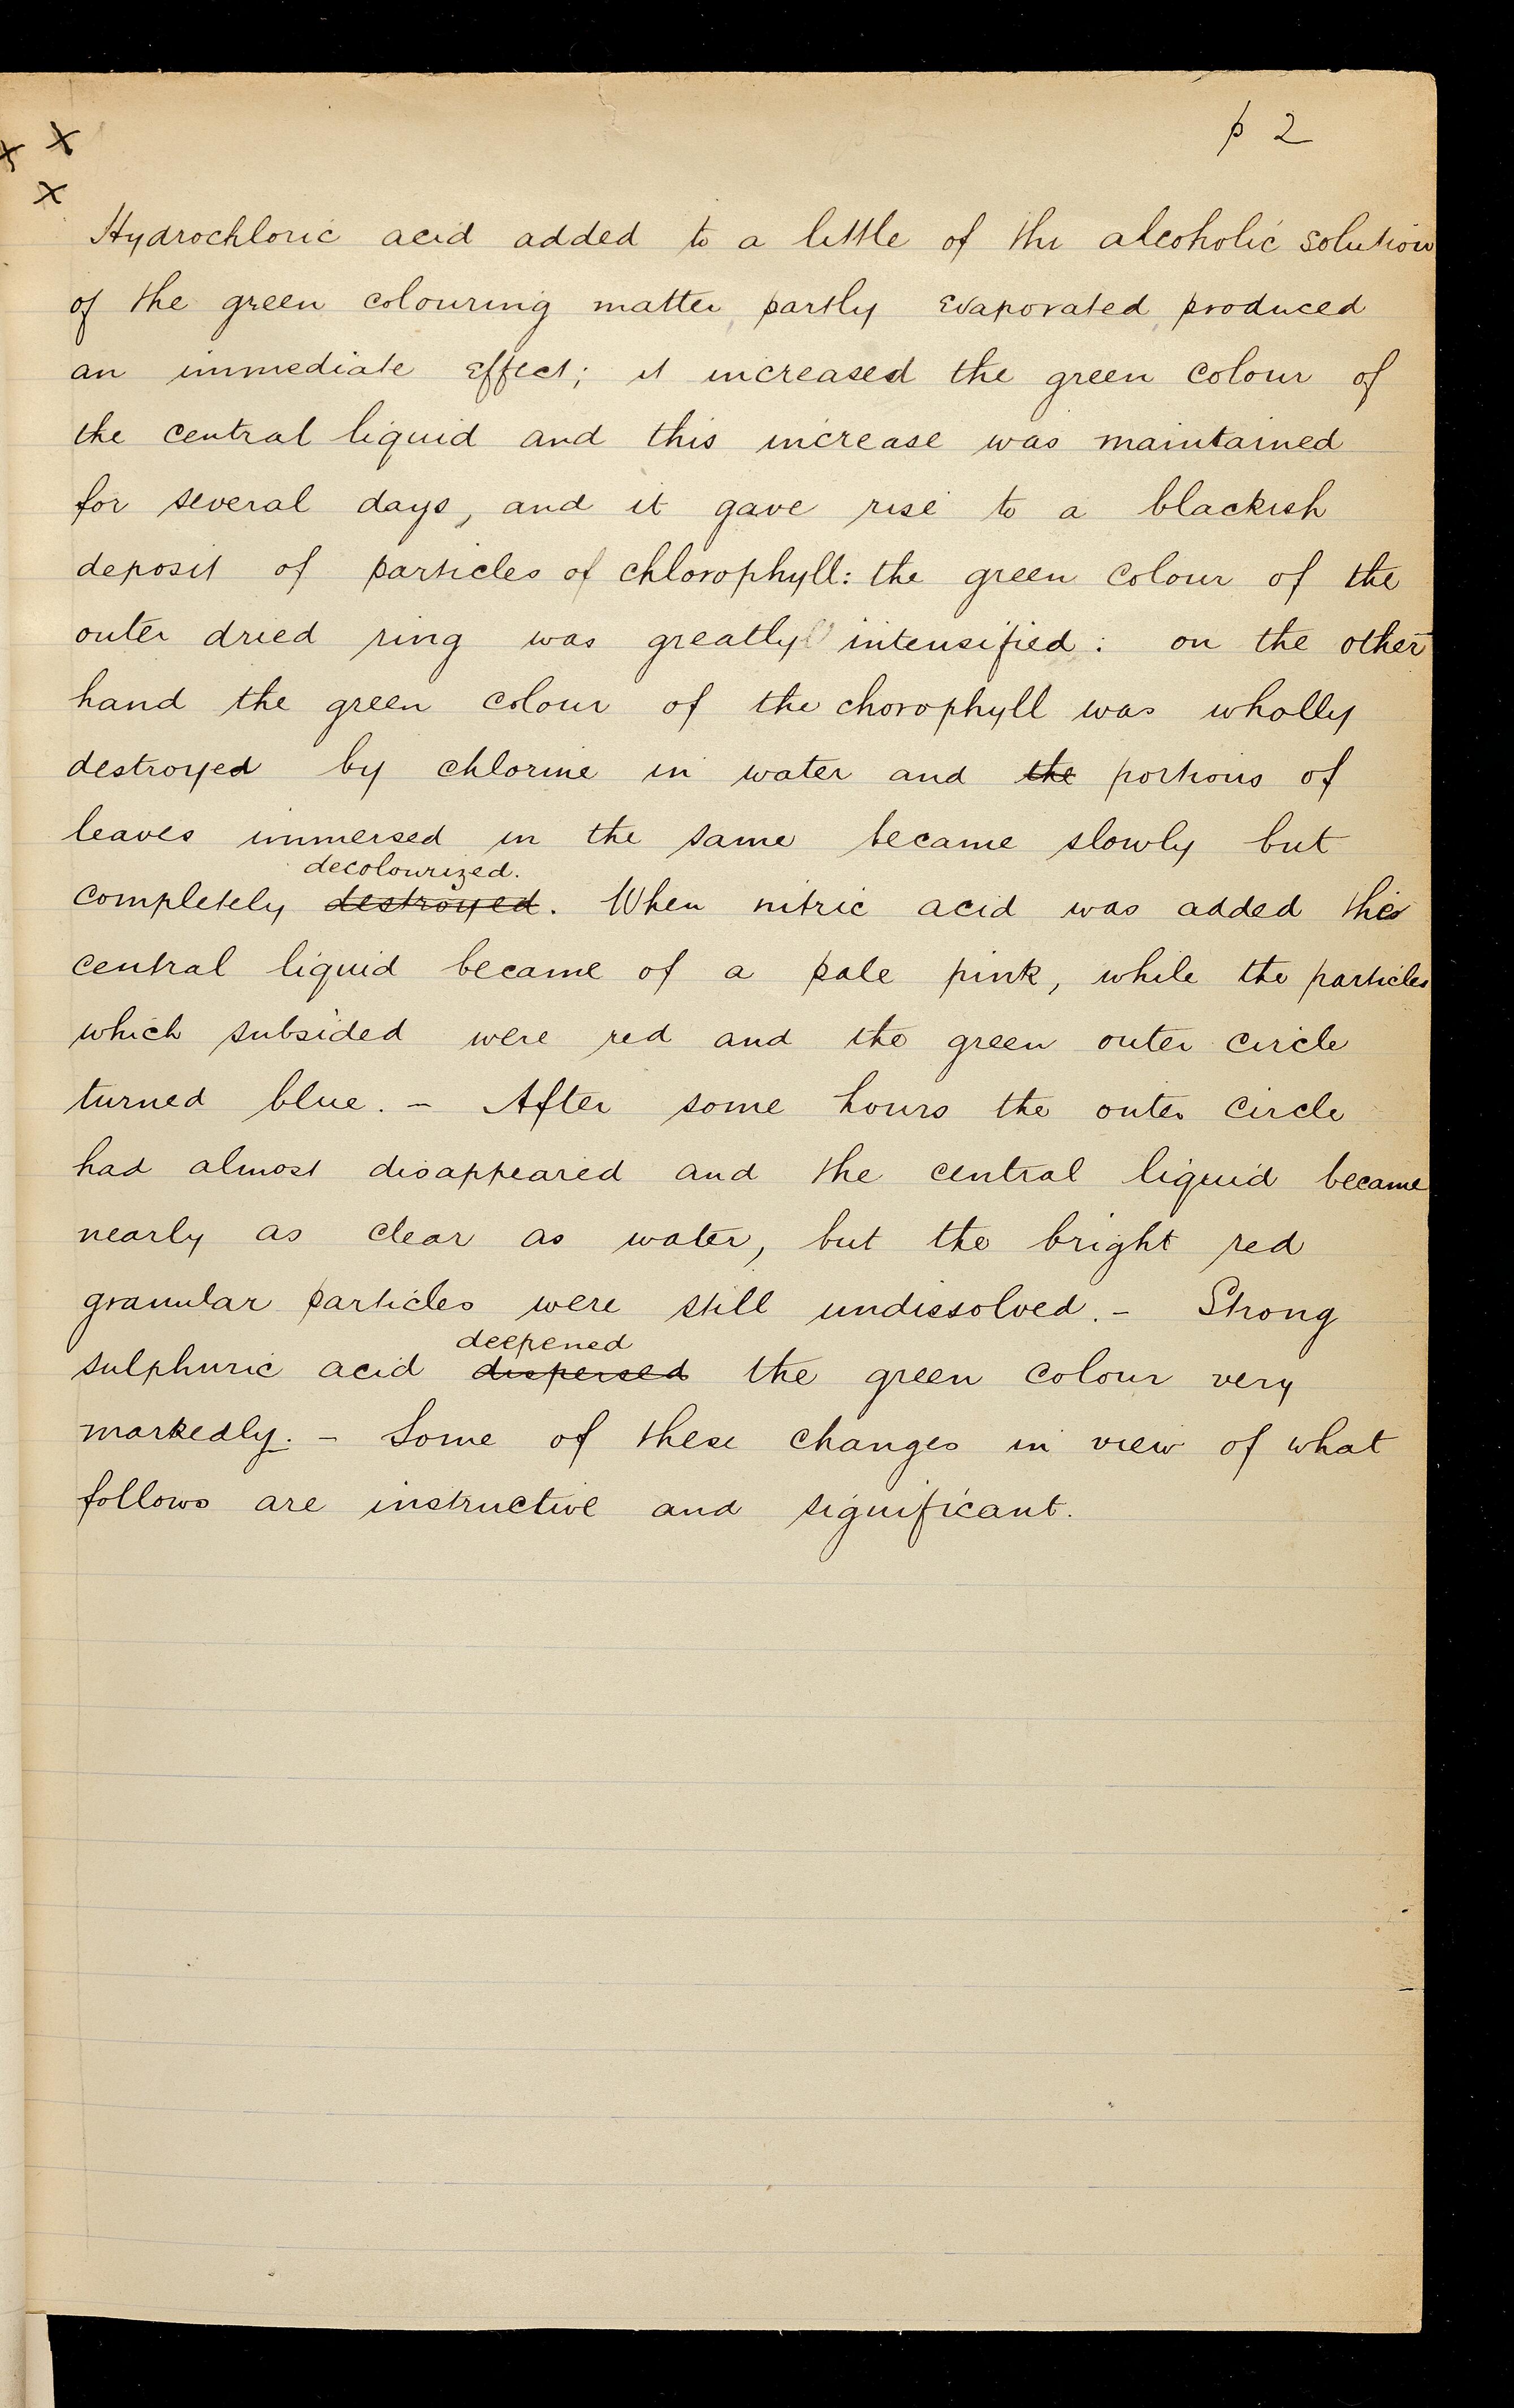 p 2
x x
x
Hydrochloric acid added to a little of the alcoholic solution
of the green colouring matter, partly evaporated, produced
an immediate effect; it increased the green colour of
the central liquid and this increase was maintained
for several days, and it gave rise to a blackish
deposit of particles of chlorophyll: the green colour of the
outer dried ring was greatly intensified: on the other
hand the green colour of the chorophyll was wholly
destroyed by chlorine in water and the portions of
leaves immersed in the same became slowly but
decolourized.
completely destroyed. When nitric acid was added the
central liquid became of a pale pink, while the particles
which subsided were red and the green outer circle
turned blue. - After some hours the outer circle
had almost disappeared and the central liquid became
nearly as clear as water, but the bright red
granular particles were still undissolved. - Strong
deepened
sulphuric acid dispersed the green colour very
markedly. - Some of these changes in view of what
follows are instructive and significant.